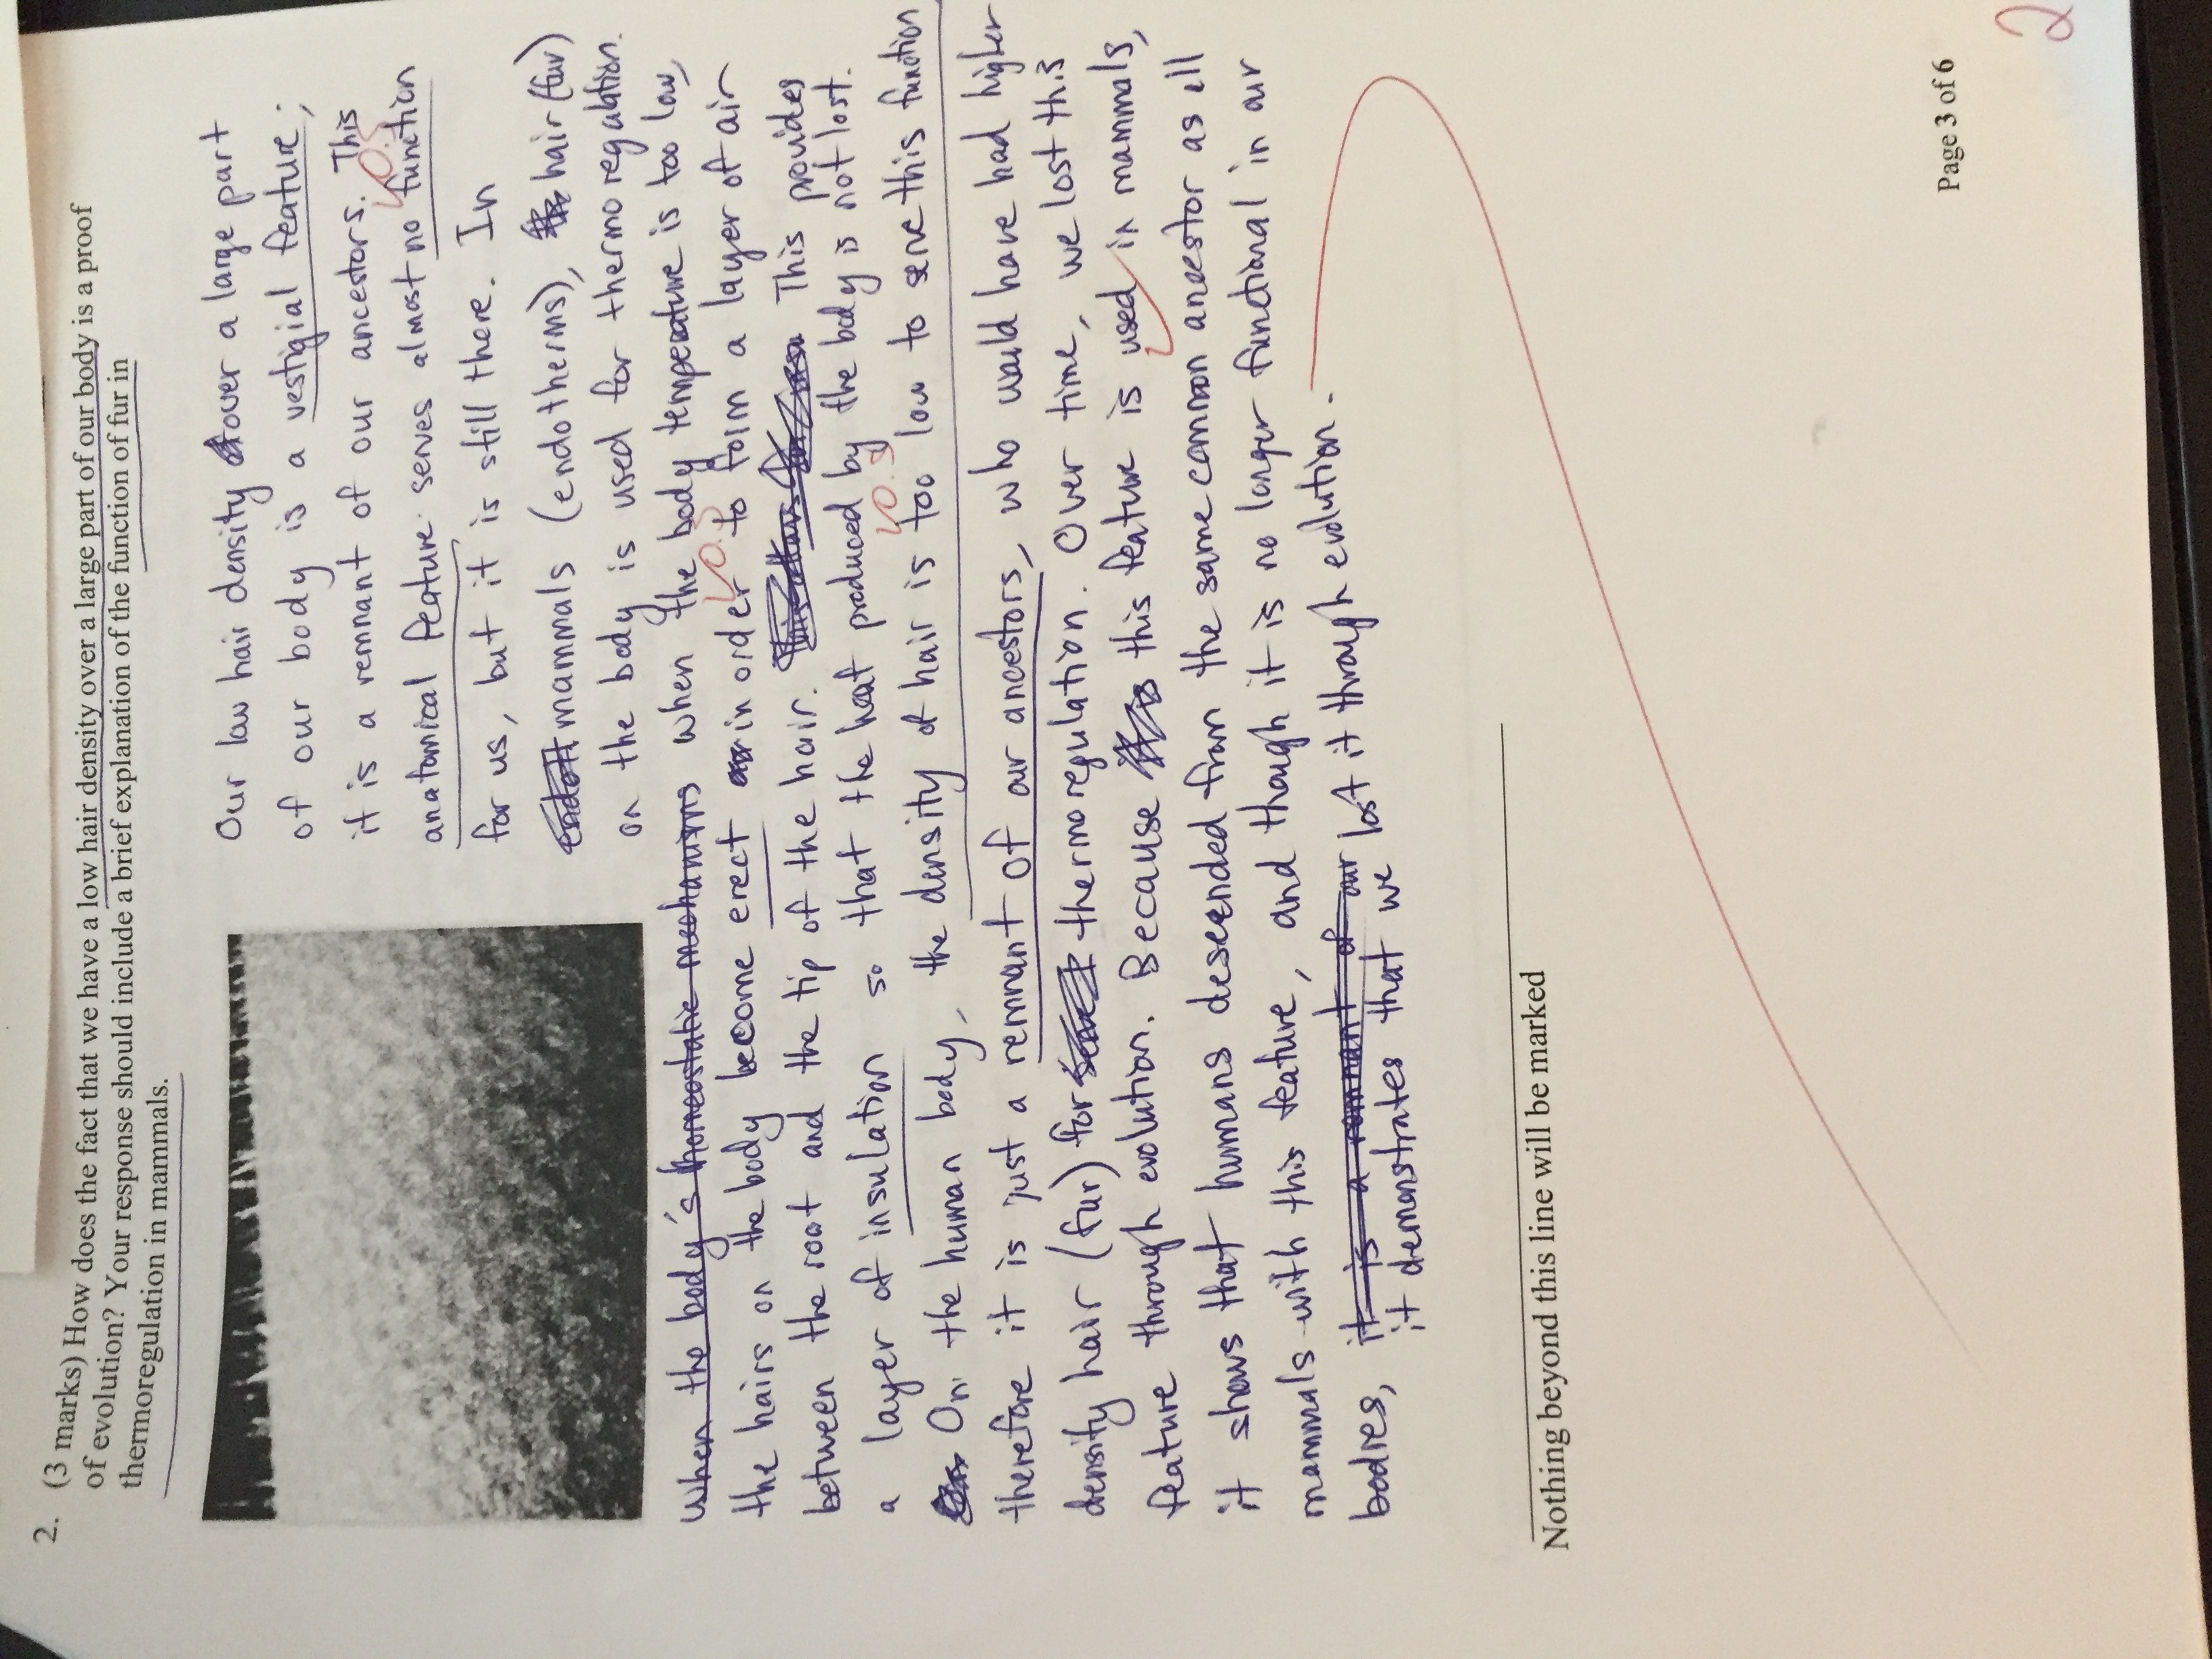 2. (3 marks) How does the fact that we have a low hair density over a large part of our body is a proof
of evolution? Your response should include a brief explanation of the function of fur in
thermoregulation in mammals.
Our low hair density over a large part
of our body is a vestigial feature;
it is a remnant of our ancestors. This
√0.5
anatomical feature serves almost no function
for us, but it is still there. In
mammals (endotherms), hair (fur)
on the body is used for thermoregulation.
When the body's homeostatic mechanisms when the body temperature is too low,
the hairs on the body become erect in order to form a layer of air
√0.5
between the root and the tip of the hair. This provides
a layer of insulation so that the heat produced by the body is not lost.
On the human body, the density of hair is too low to serve this function
√0.5
therefore it is just a remnant of our ancestors, who would have had higher
density hair (fur) for thermoregulation. Over time, we lost this
feature through evolution. Because this feature is used in mammals,
it shows that humans descended from the same common ancestor as all
mammals with this feature, and though it is no longer functional in our
bodies, it is a remnant of our lost it through evolution.
it demonstrates that we
Nothing beyond this line will be marked
Page 3 of 6
2